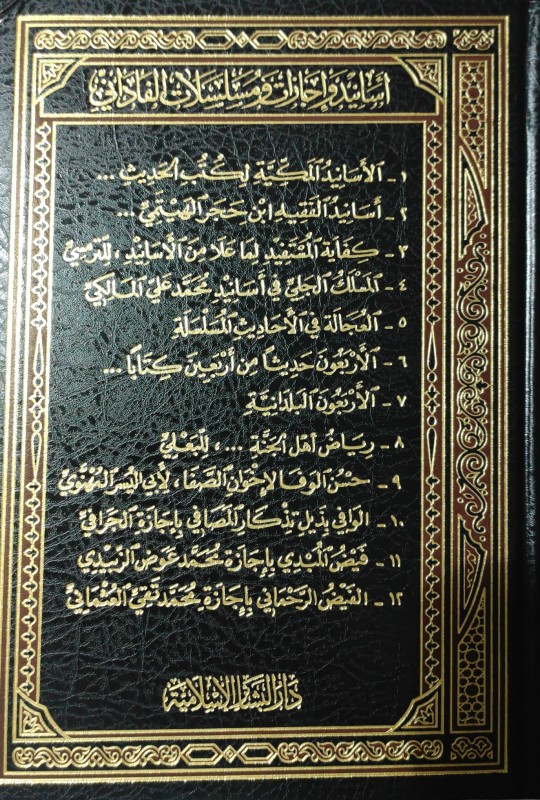 أسانيد وإجازات ومسلسلات الفاداني
١ - الأَسَانِيدُ المَكِّيَّةِ لِكُتُبِ الحَدِيثِ ...
٢ - أسَانِيدُ الفَقِيهِ ابْنِ حَجَرٍ الهَيْتَمِيِّ ...
٣ - كِفَايَةُ المُسْتَفِيدِ لِمَا عَلَا مِنَ الأَسَانِيدِ، لِلتّرمِسِيِّ
٤ - المَسْلَكُ الجَلِيُّ فِي أَسَانِيْدِ مُحَمَّد عَلِيّ المَالِكِيّ
٥ - العُجَالَة فِي الأَحَادِيثِ المُسَلْسَلَةِ
٦ - الأَرْبَعُونَ حَدِيثًا مِن أَرْبَعِينَ كِتَابًا ...
٧ - الأَرْبَعُونَ البُلْدَانِيَّةِ
٨ - رِيَاضُ أَهْلِ الجَنَّةِ ...، لِلبَعْلِيِّ
٩ - حُسْنُ الوَفَا لإِخْوَانِ الصَّفَا، لِأَبِي اليُسْرِ المُهَنْوِيّ
١٠ - الوَافِي بِذَيْلِ تِذْكَارِ المَصَافِي بِإِجَازَةِ الجَرَافِيِّ
١١ - فَيْضُ المُبْدِي بِإِجَازَةِ مُحَمَّد عَوَض الزَّبِيدِي
١٢ - الفَيْضُ الرَّحْمَانِي بِإِجَازَةِ مُحَمَّد تَقِيّ العُثْمَانِيِّ
دار البشائر الإسلامية